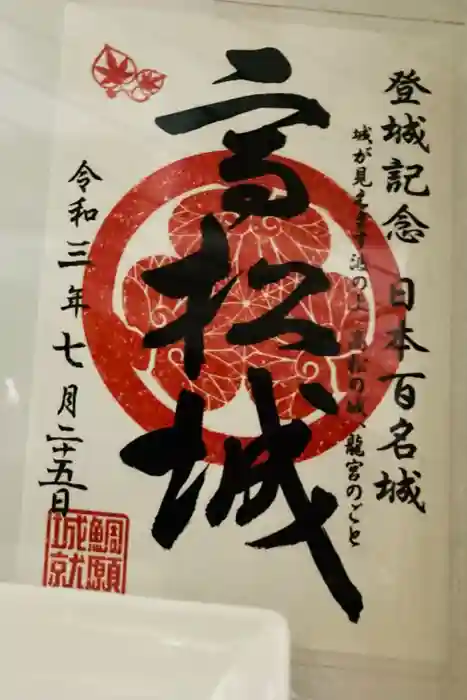 登城記念 日本百名城
城が見えます波の上 高松の城、龍宮のごと
高松城
令和三年七月二十五日
鯛願
城就